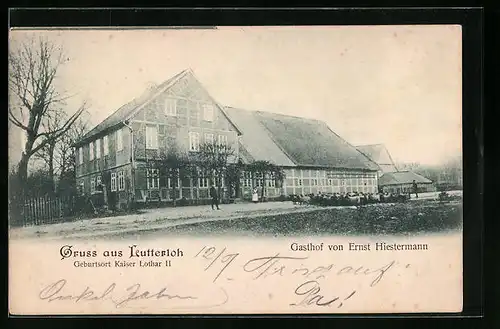 Gruss aus Lutterloh
Geburtsort Kaiser Lothar II
Gasthof von Ernst Hiestermann
12/9
Onkel Jahn
Prosit auf!